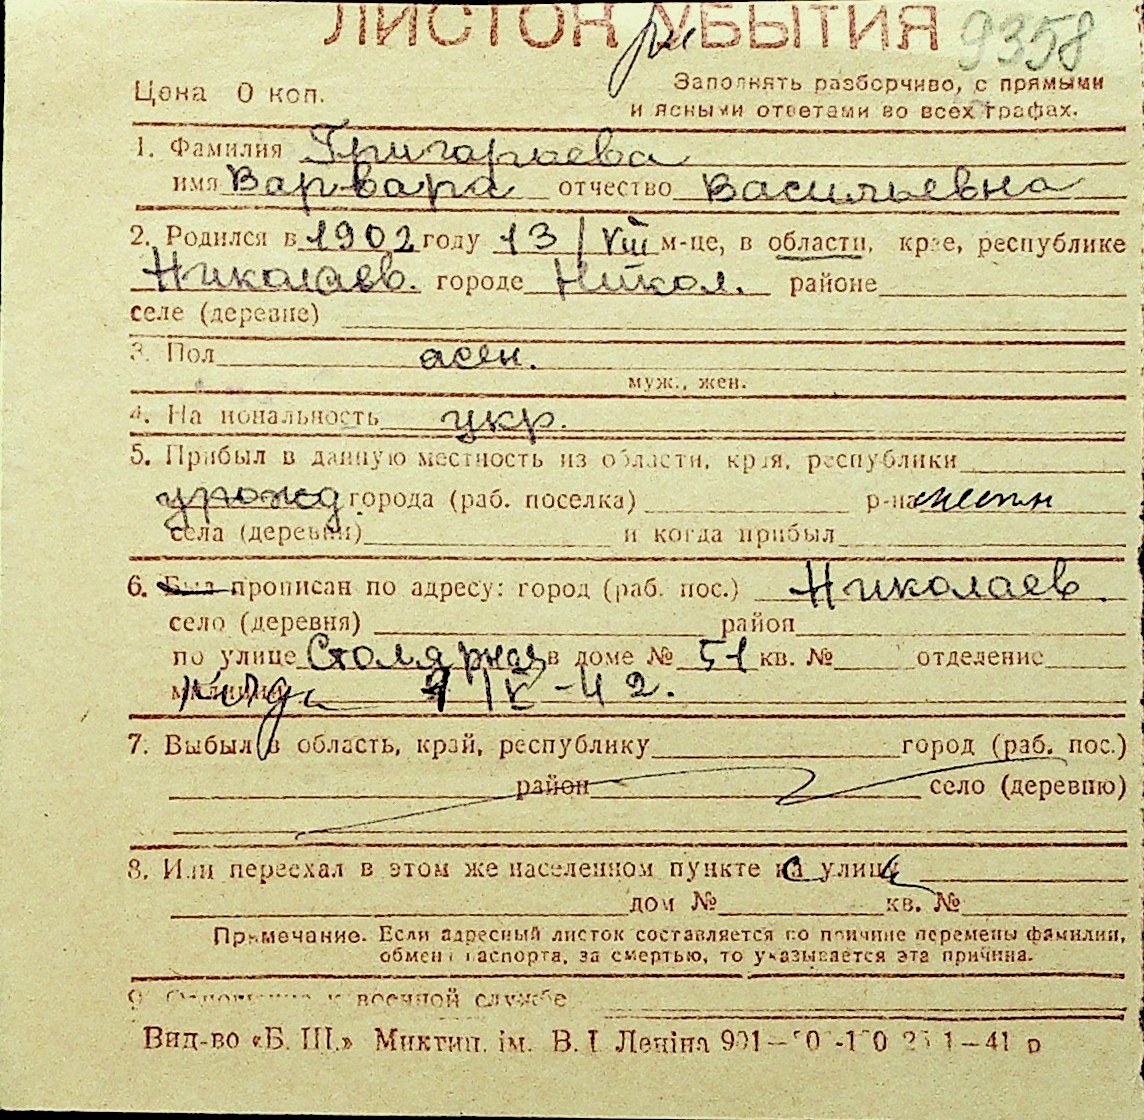 ЛИСТОК УБЫТИЯ 9358
Цена 0 коп.
Заполнять разборчиво, с прямыми
и ясными ответами во всех графах.
1. Фамилия Григораева
имя Варвара отчество Васильевна
2. Родился в 1902 году 13/VIII м-це, в области, крае, республике
Николаев. городе Никол. районе
селе (деревне)
3. Пол жен.
муж., жен.
4. Национальность укр.
5. Прибыл в данную местность из области, края, республики
урожд города (раб. поселка) р-на местн
села (деревни) и когда прибыл
6. Был прописан по адресу: город (раб. пос.) Николаев.
село (деревня) район
по улице Столярная в доме № 51 кв. № отделение
милиции IX-42.
7. Выбыл в область, край, республику город (раб. пос.)
район село (деревню)
8. Или переехал в этом же населенном пункте на улицу
дом № кв. №
Примечание. Если адресный листок составляется по причине перемены фамилии,
обмена паспорта, за смертью, то указывается эта причина.
9. Отношение к военной службе
Вид-во «Б. Ш.» Миктип. ім. В. І Леніна